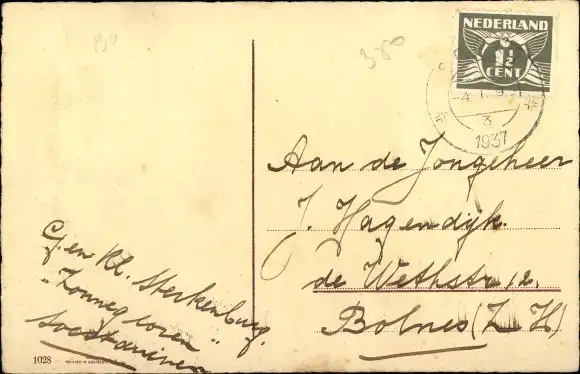 NEDERLAND
1½
CENT
3
1937
350
Aan de Jongeheer
J. Hagendijk.
de Wethstr 12.
Bolnes (Z H)
G. en Kl. Sterkenburg.
"Zonnegloren"
Soestduinen
1028